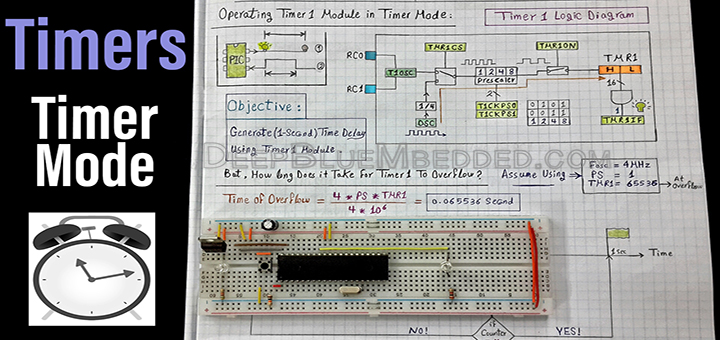 Timers
Timer
Mode
Operating Timer1 Module in Timer Mode:
Timer 1 Logic Diagram
PIC
1
2
RC0
RC1
T1OSC
TMR1CS
TMR1ON
TMR1
H L
1 2 4 8
Prescaler
2
16
1/4
OSC
T1CKPS0
T1CKPS1
0 1 0 1
0 0 1 1
1 2 4 8
1
TMR1IF
Objective:
Generate (1-Second) Time Delay
Using Timer1 Module
DeepBlueMbedded.com
But. How long Does it Take For Timer1 To Overflow?
Assume Using
Fosc = 4MHz
PS = 1
TMR1 = 65536
At overflow
Time of Overflow = 4 * PS * TMR1 / 4 * 10^6 = 0.065536 Second
1sec
Time
NO!
if
Counter
YES!